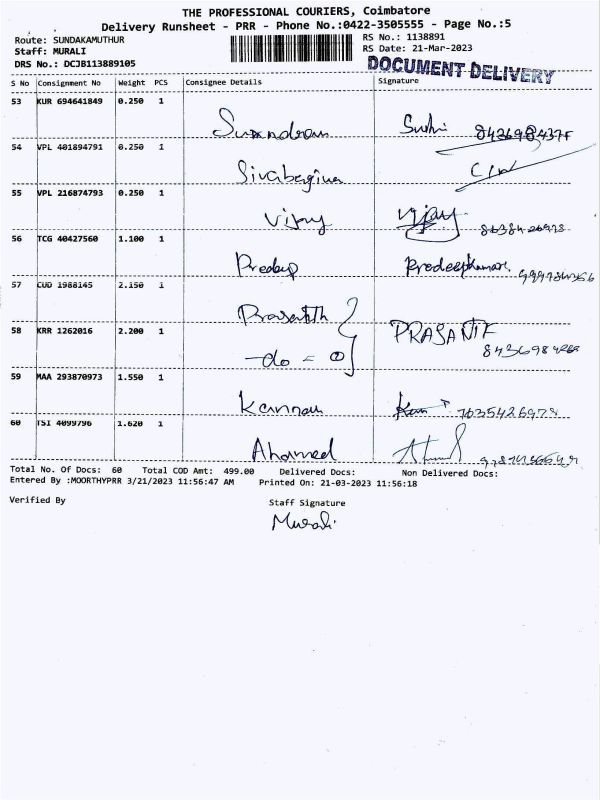 THE PROFESSIONAL COURIERS, Coimbatore
Delivery Runsheet - PRR - Phone No.:0422-3505555 - Page No.:5
Route: SUNDAKAMUTHUR
Staff: MURALI
DRS No.: DCJB113889105
RS No.: 1138891
RS Date: 21-Mar-2023
DOCUMENT DELIVERY
S No Consignment No Weight PCS Consignee Details Signature
53 KUR 694641849 0.250 1
54 VPL 401894791 0.250 1
55 VPL 216874793 0.250 1 Vijay Vijay
56 TCG 40427560 1.100 1 Predeep Predeepkumar
57 CUD 1988145 2.150 1 Prasanth
58 KRR 1262016 2.200 1 -do =
59 MAA 293870973 1.550 1 Kannan
60 TSI 4099796 1.620 1 Ahamed
Total No. Of Docs: 60 Total COD Amt: 499.00 Delivered Docs: Non Delivered Docs:
Entered By :MOORTHYPRR 3/21/2023 11:56:47 AM Printed On: 21-03-2023 11:56:18
Verified By Staff Signature
Murali